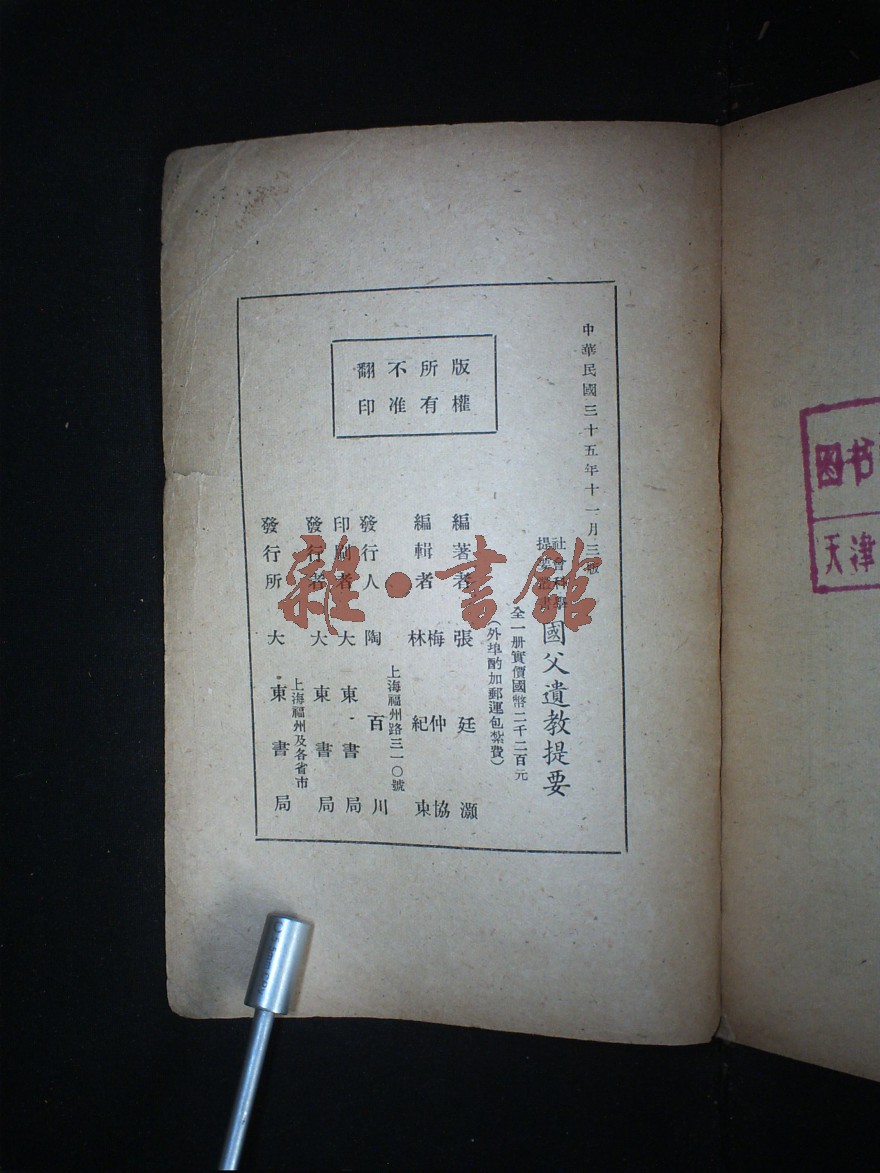 中華民國三十五年十一月三版
社會科學
提要叢書
國父遺教提要
全一册實價國幣二千二百元
（外埠酌加郵運包紮費）
版權
所有
不准
翻印
編著者 張廷灝
編輯者 梅仲協
林紀東
上海福州路三一〇號
發行人 陶百川
印刷者 大東書局
發行者 大東書局
上海福州及各省市
發行所 大東書局
雜·書館
图书
天津